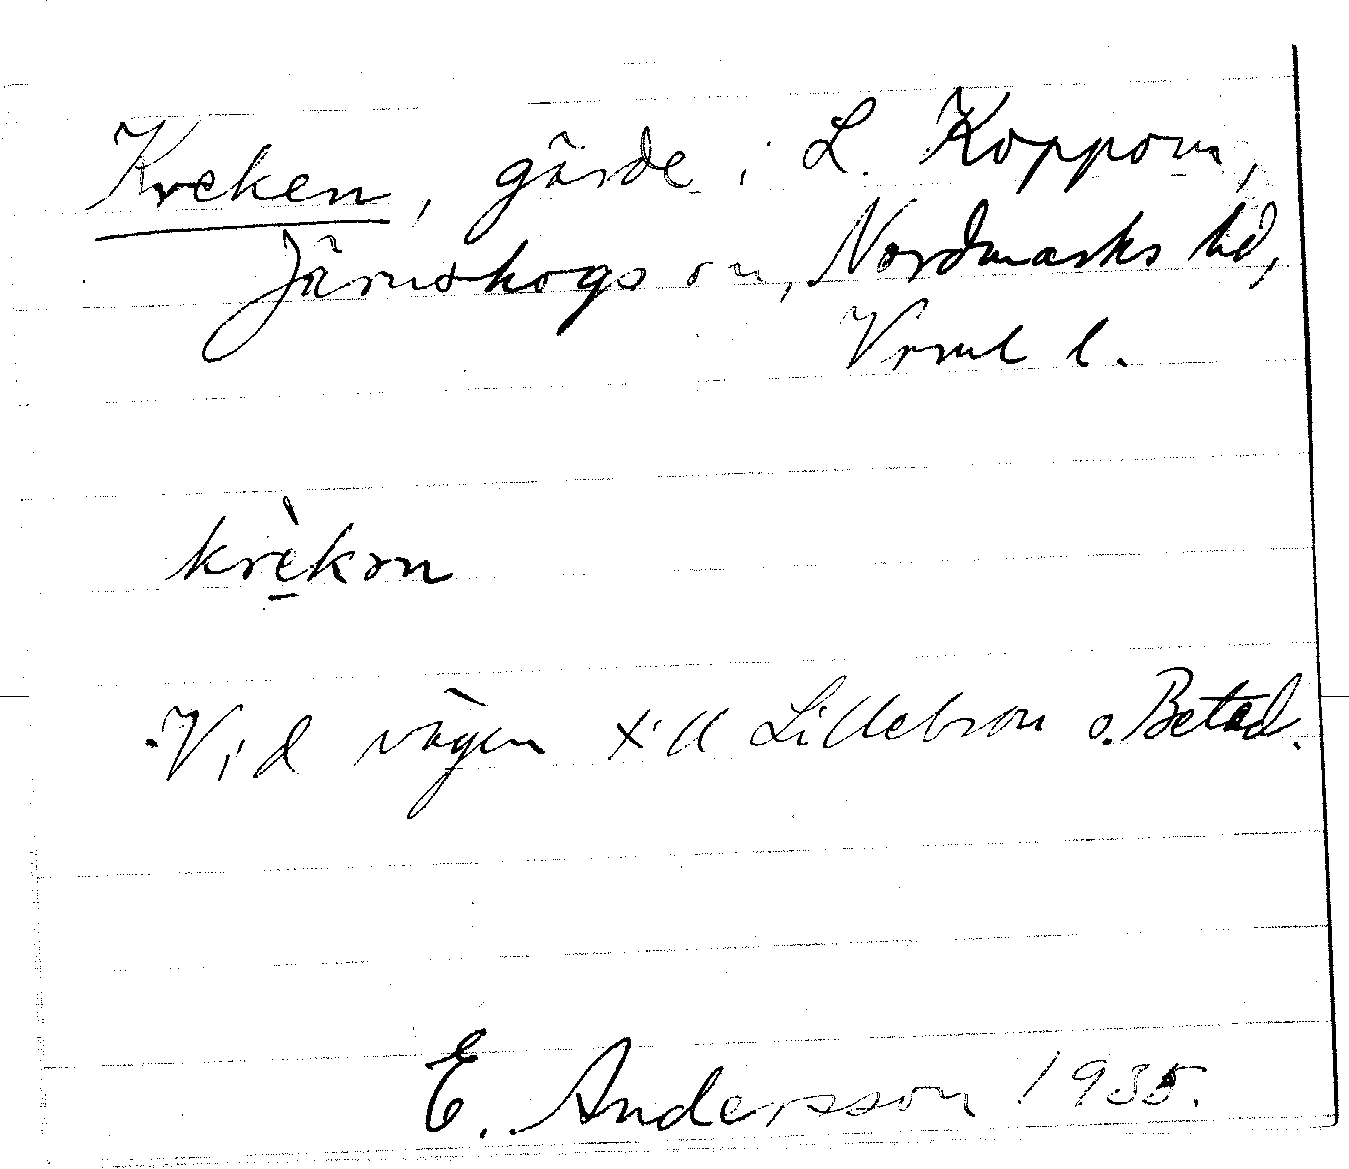 Kreken, gärde i L. Koppom,
Järnskogs sn, Nordmarks hd,
Vrml l.
krèkon
Vid vägen till Lillebron o. Betad.
E. Andersson 1935.